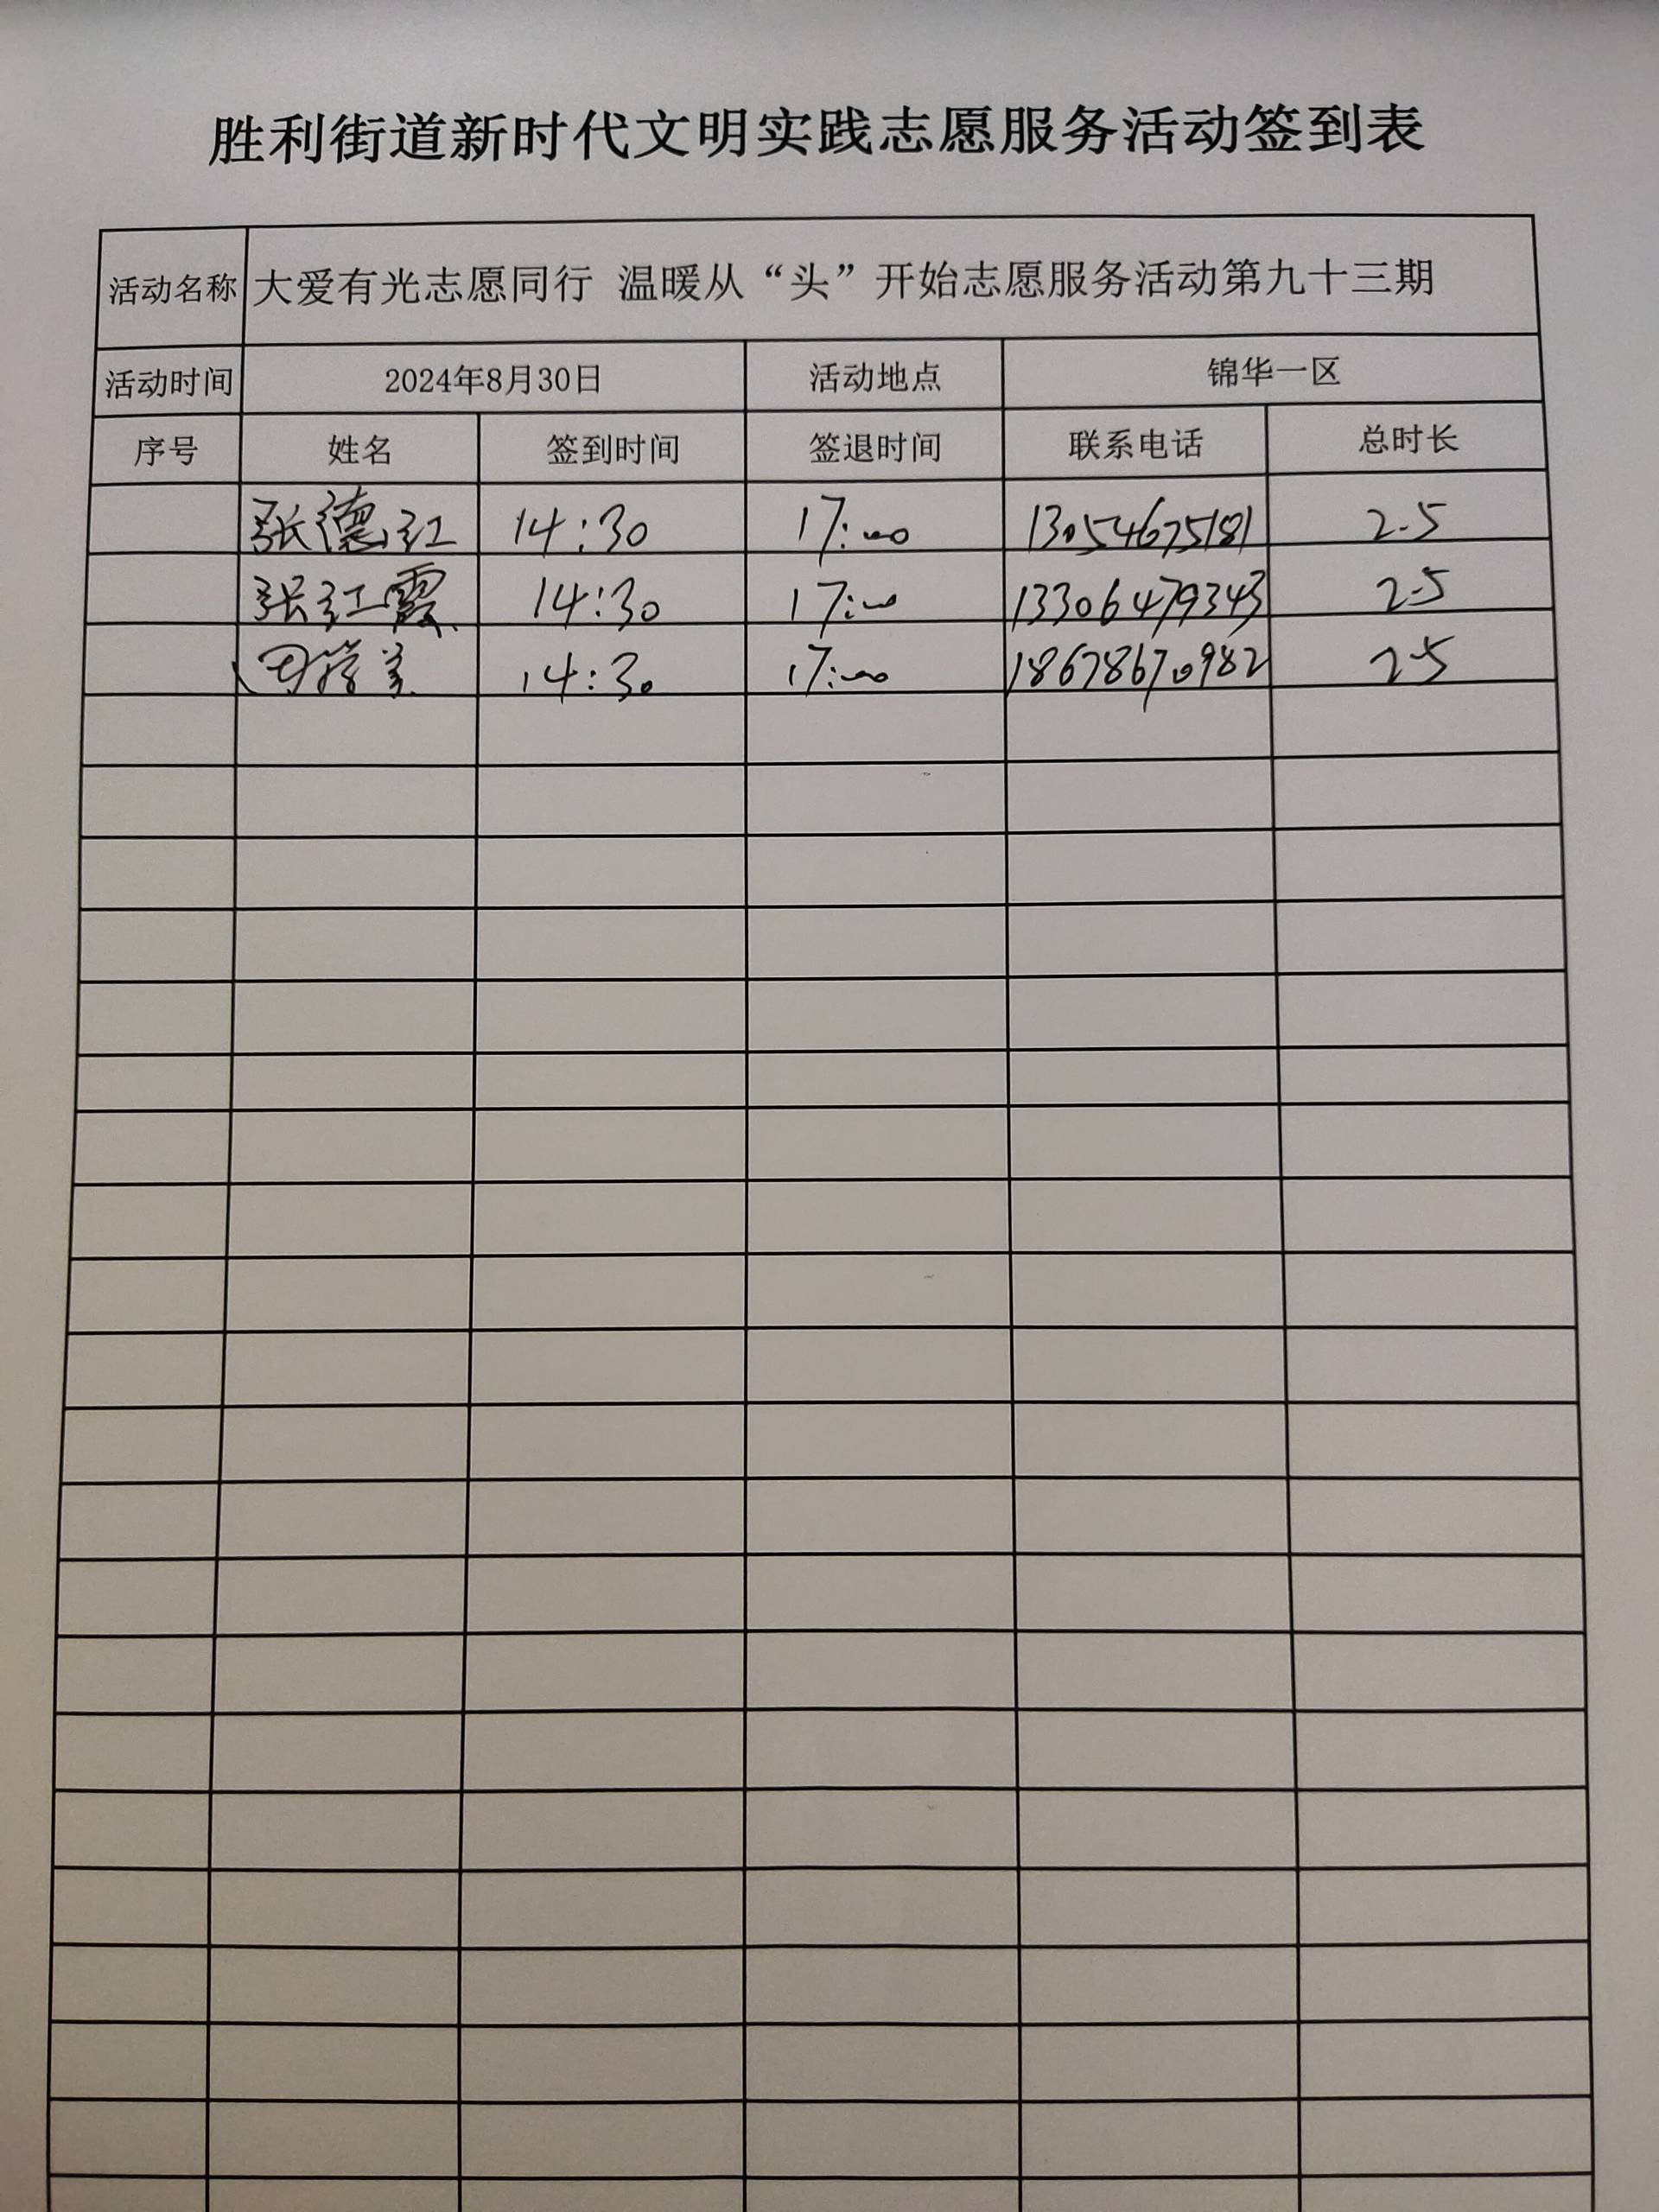 胜利街道新时代文明实践志愿服务活动签到表
活动名称 大爱有光志愿同行 温暖从“头”开始志愿服务活动第九十三期
活动时间 2024年8月30日 活动地点 锦华一区
序号 姓名 签到时间 签退时间 联系电话 总时长
张德红 14:30 17:00 13054675181 2.5
张红霞 14:30 17:00 13306479343 2.5
14:30 17:00 18678670982 2.5